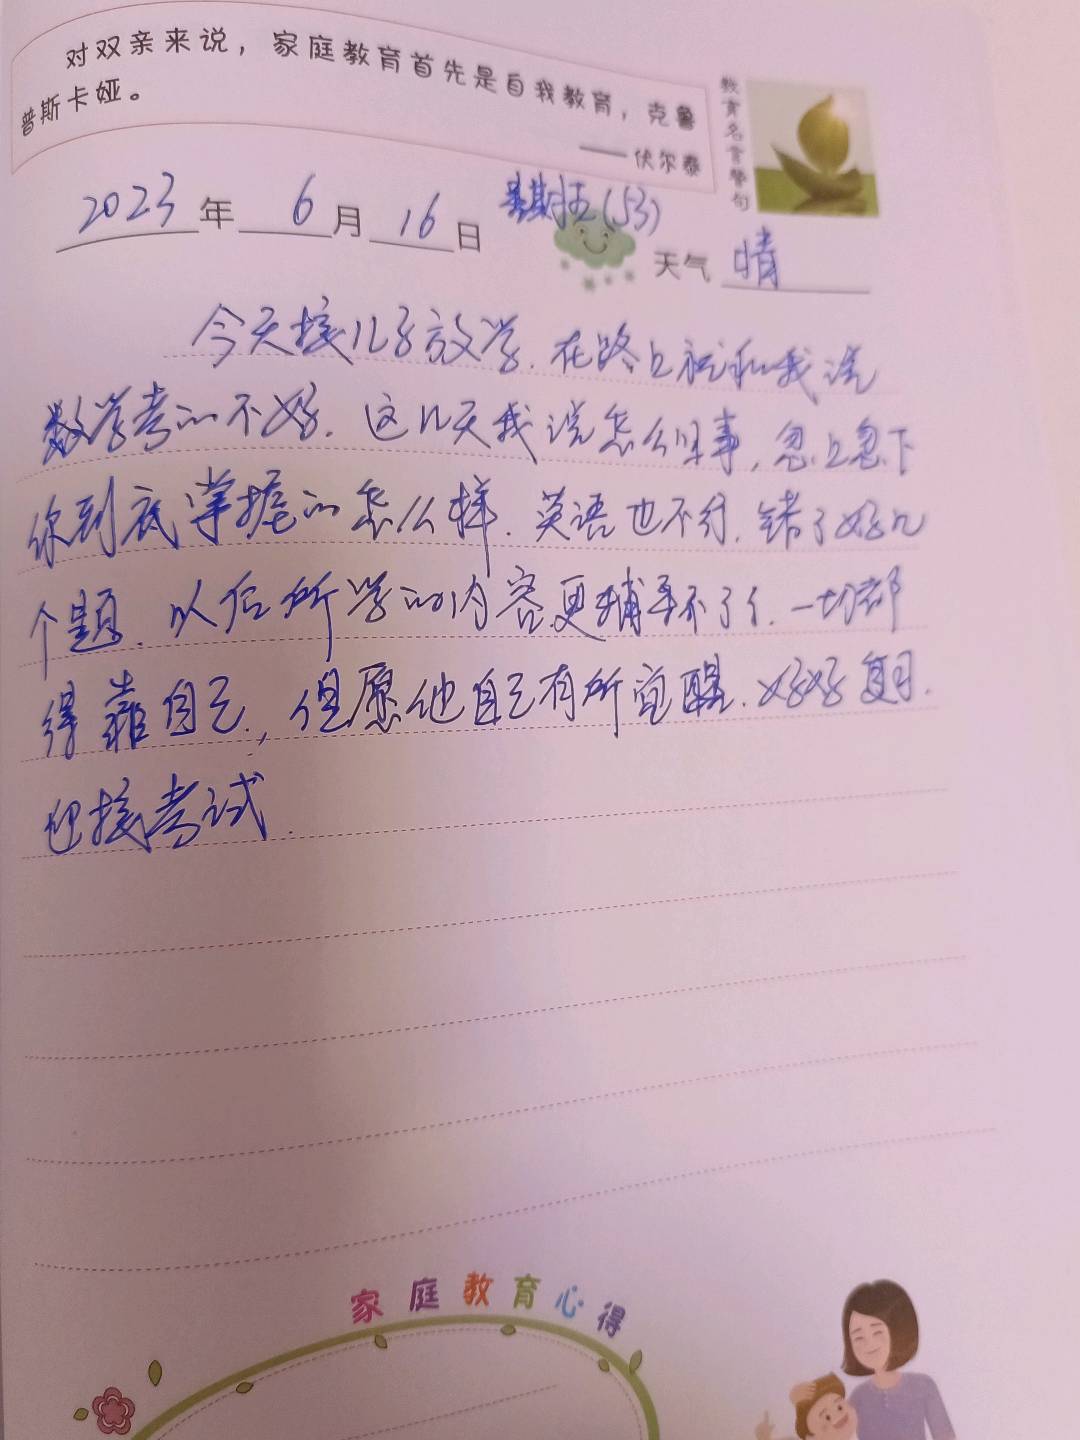 对双亲来说，家庭教育首先是自我教育，克鲁
普斯卡娅。
——伏尔泰
教育名言警句
2023年 6月 16日
(53)
天气 晴
今天接儿子放学.在路上就和我说
数学考的不好.这几天我说怎么回事,忽上忽下
你到底掌握的怎么样.英语也不行.错了好几
个题.以后所学的内容更辅导不了了.一切都
得靠自己,但愿他自己有所觉醒.好好复习.
迎接考试.
家庭教育心得